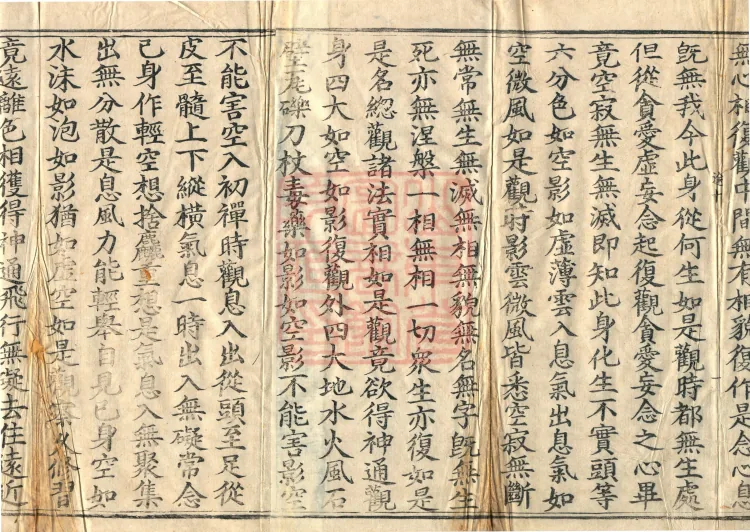 無心相復觀中間無有相貌復作是念心息
既無我今此身從何生如是觀時都無生處
但從貪愛虛妄念起復觀貪愛妄念之心畢
竟空寂無生無滅即知此身化生不實頭等
六分色如空影如虛薄雲入息氣出息氣如
空微風如是觀時影雲微風皆悉空寂無斷
無常無生無滅無相無貌無名無字既無生
死亦無涅槃一相無相一切眾生亦復如是
是名總觀諸法實相如是觀竟欲得神通觀
身四大如空如影復觀外四大地水火風石
壁瓦礫刀杖毒藥如影如空影不能害影空
不能害空入初禪時觀息入出從頭至足從
皮至髓上下縱橫氣息一時出入無礙常念
己身作輕空想捨麤重想是氣息入無聚集
出無分散是息風力能輕舉自見己身空如
水沫如泡如影猶如虛空如是觀察久修習
竟遠離色相獲得神通飛行無礙去住遠近